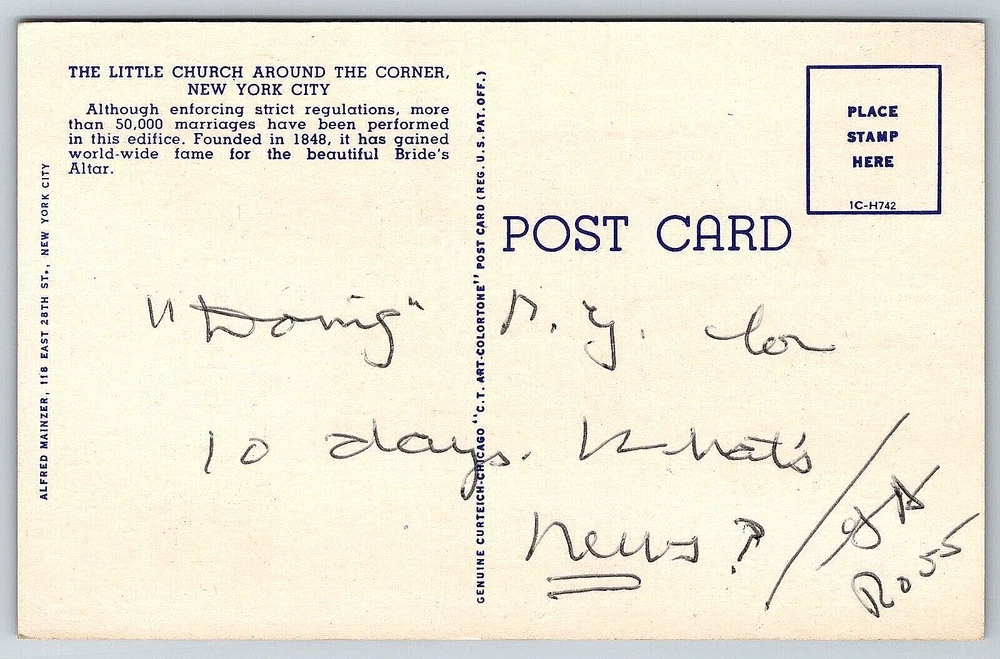 THE LITTLE CHURCH AROUND THE CORNER,
NEW YORK CITY
Although enforcing strict regulations, more
than 50,000 marriages have been performed
in this edifice. Founded in 1848, it has gained
world-wide fame for the beautiful Bride's
Altar.
ALFRED MAINZER, 118 EAST 28TH ST., NEW YORK CITY
GENUINE CURTEICH-CHICAGO "C.T. ART-COLORTONE" POST CARD (REG. U. S. PAT. OFF.)
PLACE
STAMP
HERE
1C-H742
POST CARD
"Doing" N. Y. for
10 days. What's
news?
Ross